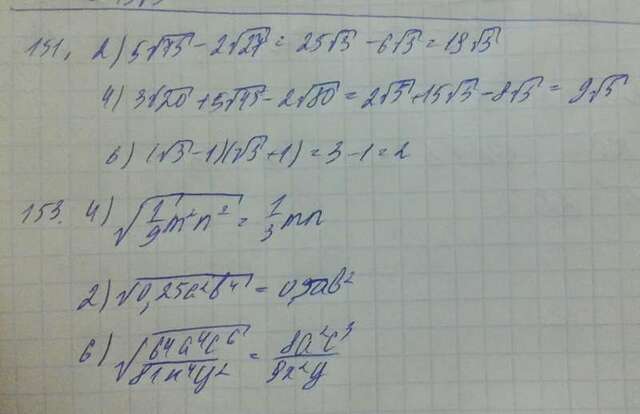 151. 2) 5√75 - 2√27 = 25√3 - 6√3 = 19√3
4) 3√20 + 5√45 - 2√80 = 2√5 + 15√5 - 8√5 = 9√5
6) (√3 - 1)(√3 + 1) = 3 - 1 = 2
153. 4) √(1/9 m²n²) = 1/3 mn
2) √(0,25a²b⁴) = 0,5ab²
6) √(64a⁴c⁶/81x⁴y²) = 8a²c³/9x²y